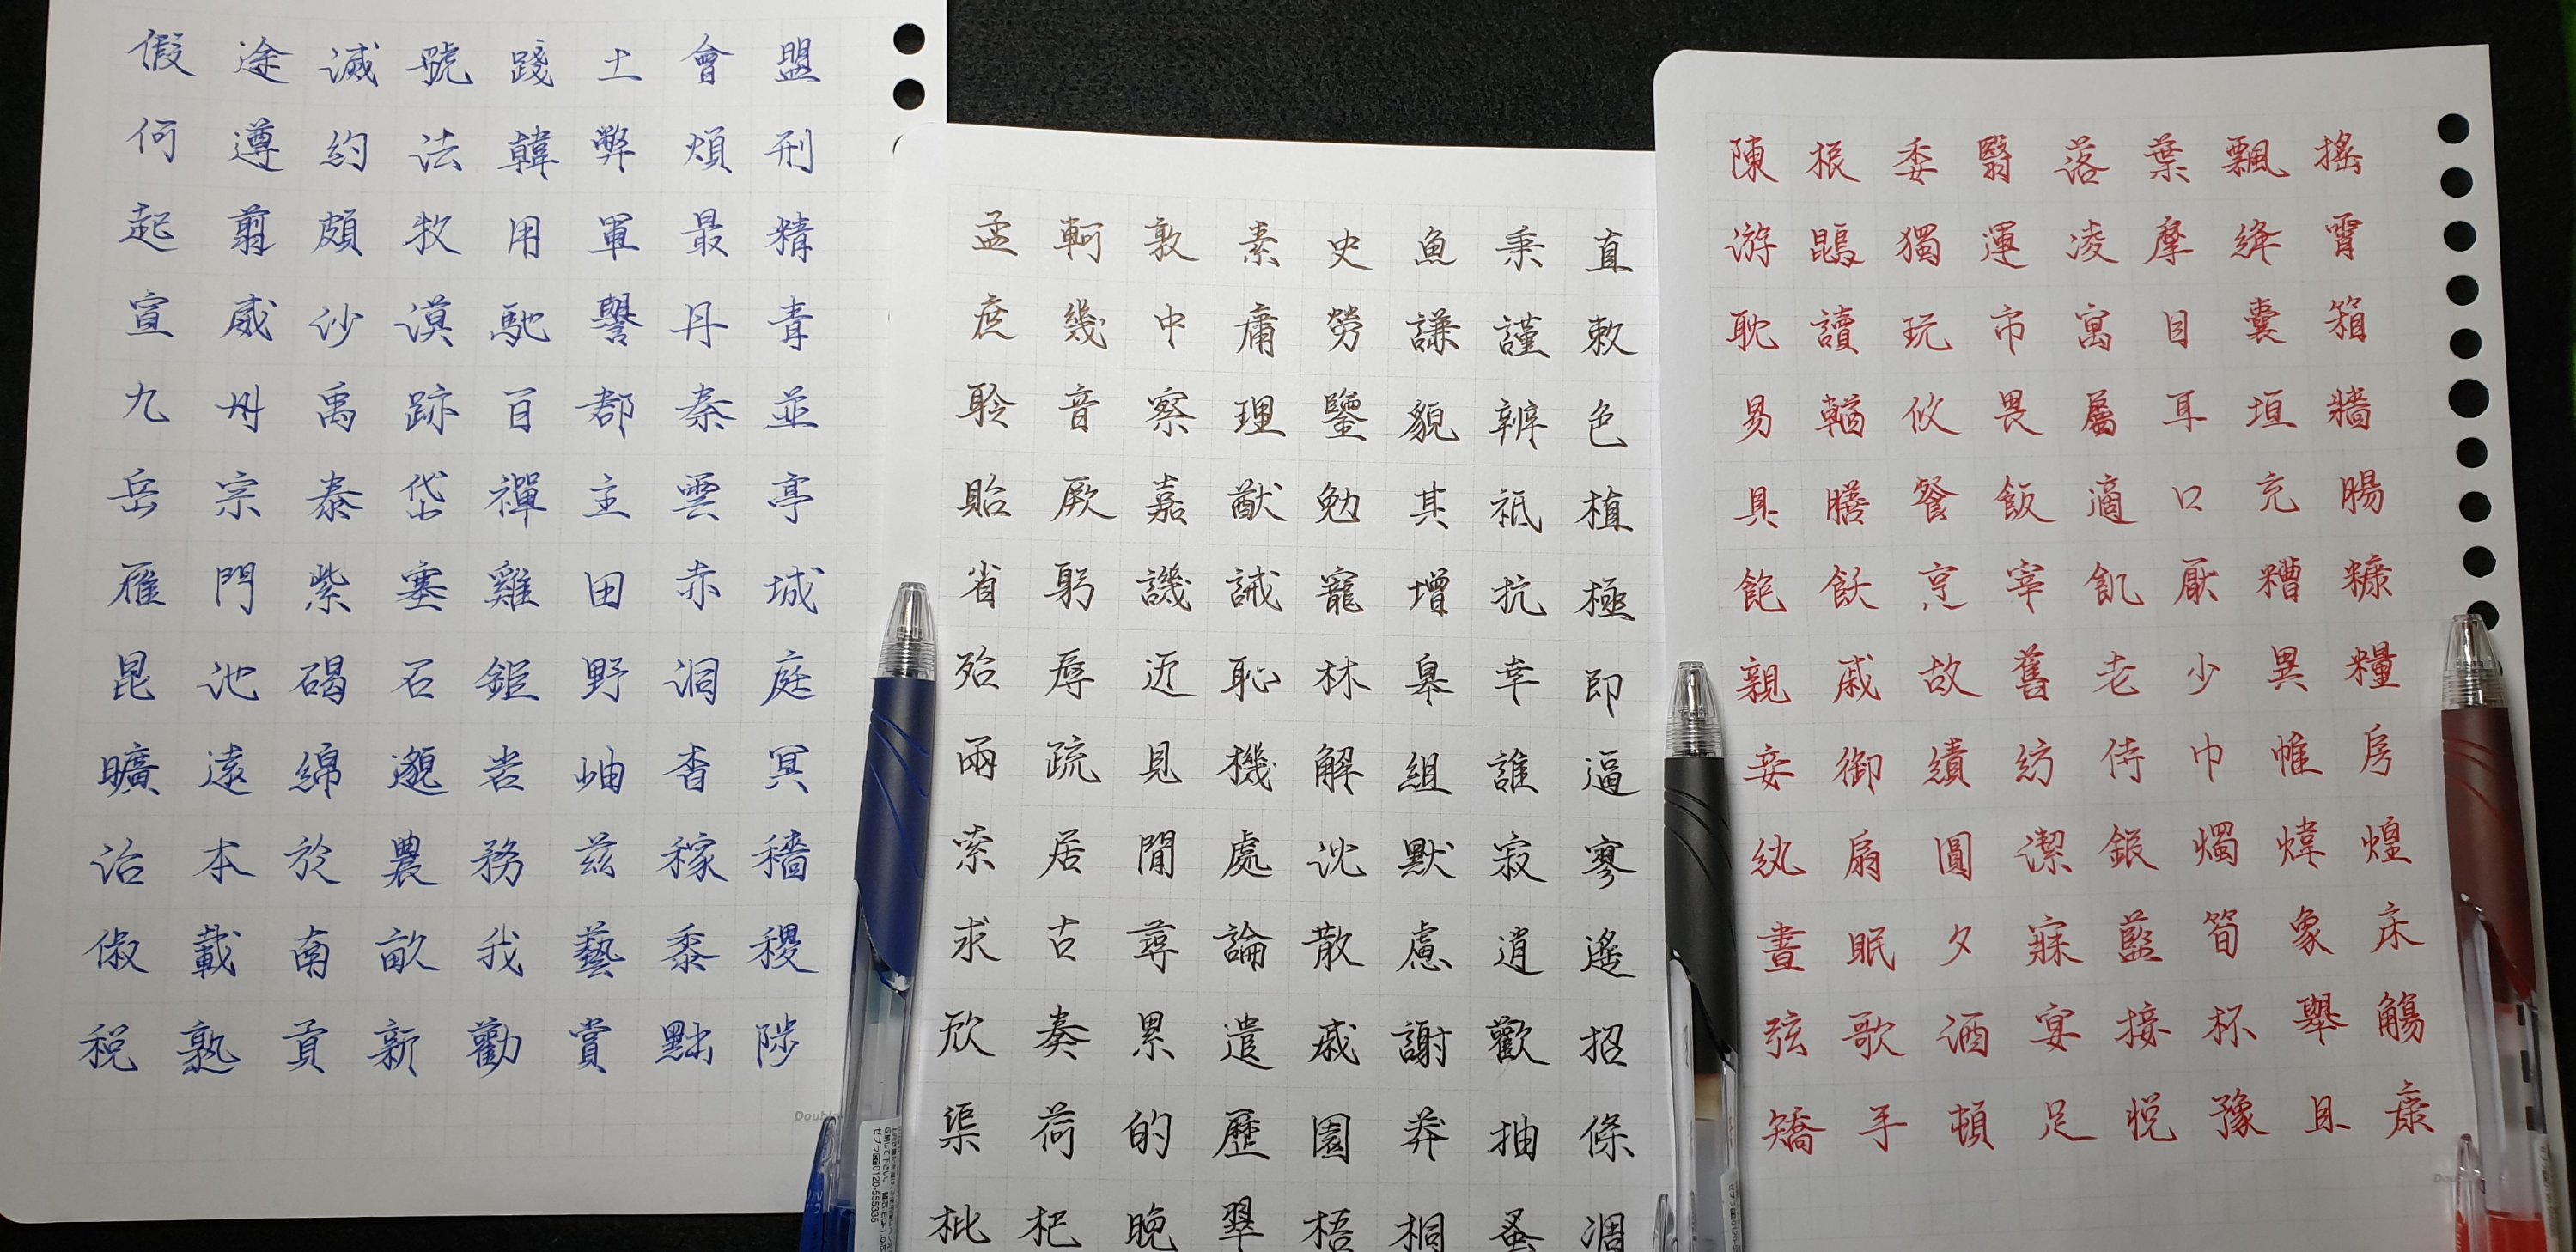 假途滅號踐土會盟
何遵約法韓弊煩刑
起翦頗牧用軍最精
宣威沙漠馳譽丹青
九州禹跡百郡秦並
岳宗泰岱禪主雲亭
雁門紫塞雞田赤城
昆池碣石鉅野洞庭
曠遠綿邈岩岫杳冥
治本於農務茲稼穡
俶載南畝我藝黍稷
稅熟貢新勸賞黜陟
孟軻敦素史魚秉直
庶幾中庸勞謙謹敕
聆音察理鑒貌辨色
貽厥嘉猷勉其祗植
省躬譏誡寵增抗極
殆辱近恥林皋幸即
兩疏見機解組誰逼
索居閒處沈默寂寥
求古尋論散慮逍遙
欣奏累遣慼謝歡招
渠荷的歷園莽抽條
枇杷晚翠梧桐蚤凋
陳根委翳落葉飄搖
游鵾獨運凌摩絳霄
耽讀玩市寓目囊箱
易輶攸畏屬耳垣牆
具膳餐飯適口充腸
飽飫烹宰飢厭糟糠
親戚故舊老少異糧
妾御績紡侍巾帷房
紈扇圓潔銀燭煒煌
晝眠夕寐藍筍象床
弦歌酒宴接杯舉觴
矯手頓足悅豫且康
ゼブラ 0120-555335